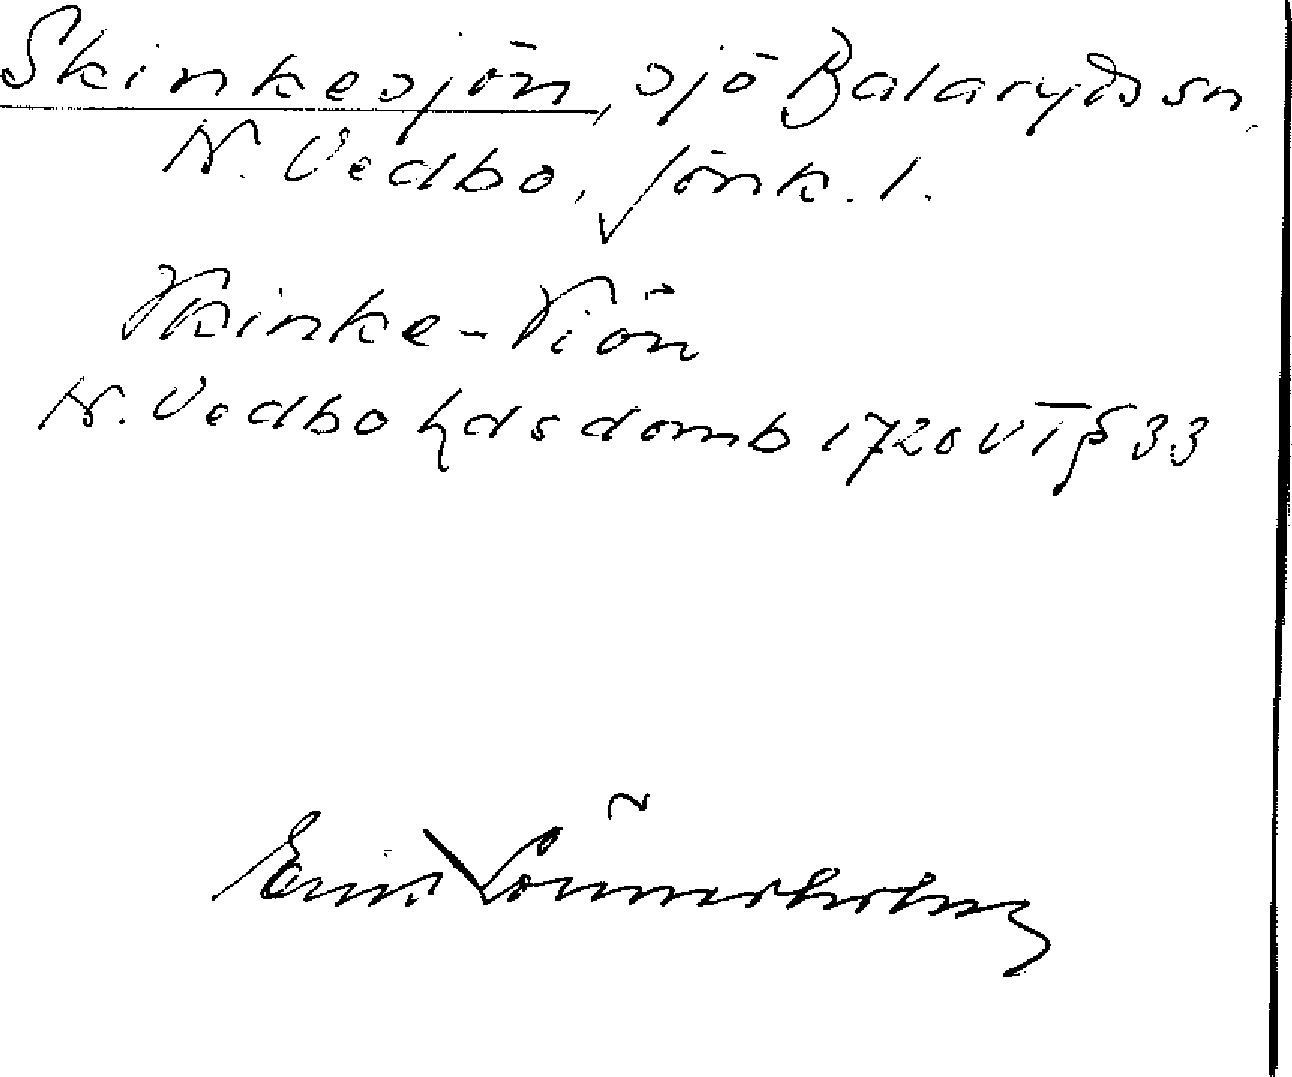 Skinkesjön, sjö Balaryds sn,
N. Vedbo, Jönk. l.
Skinke-Siön
N. Vedbo hdsdomb 1720 VT § 33